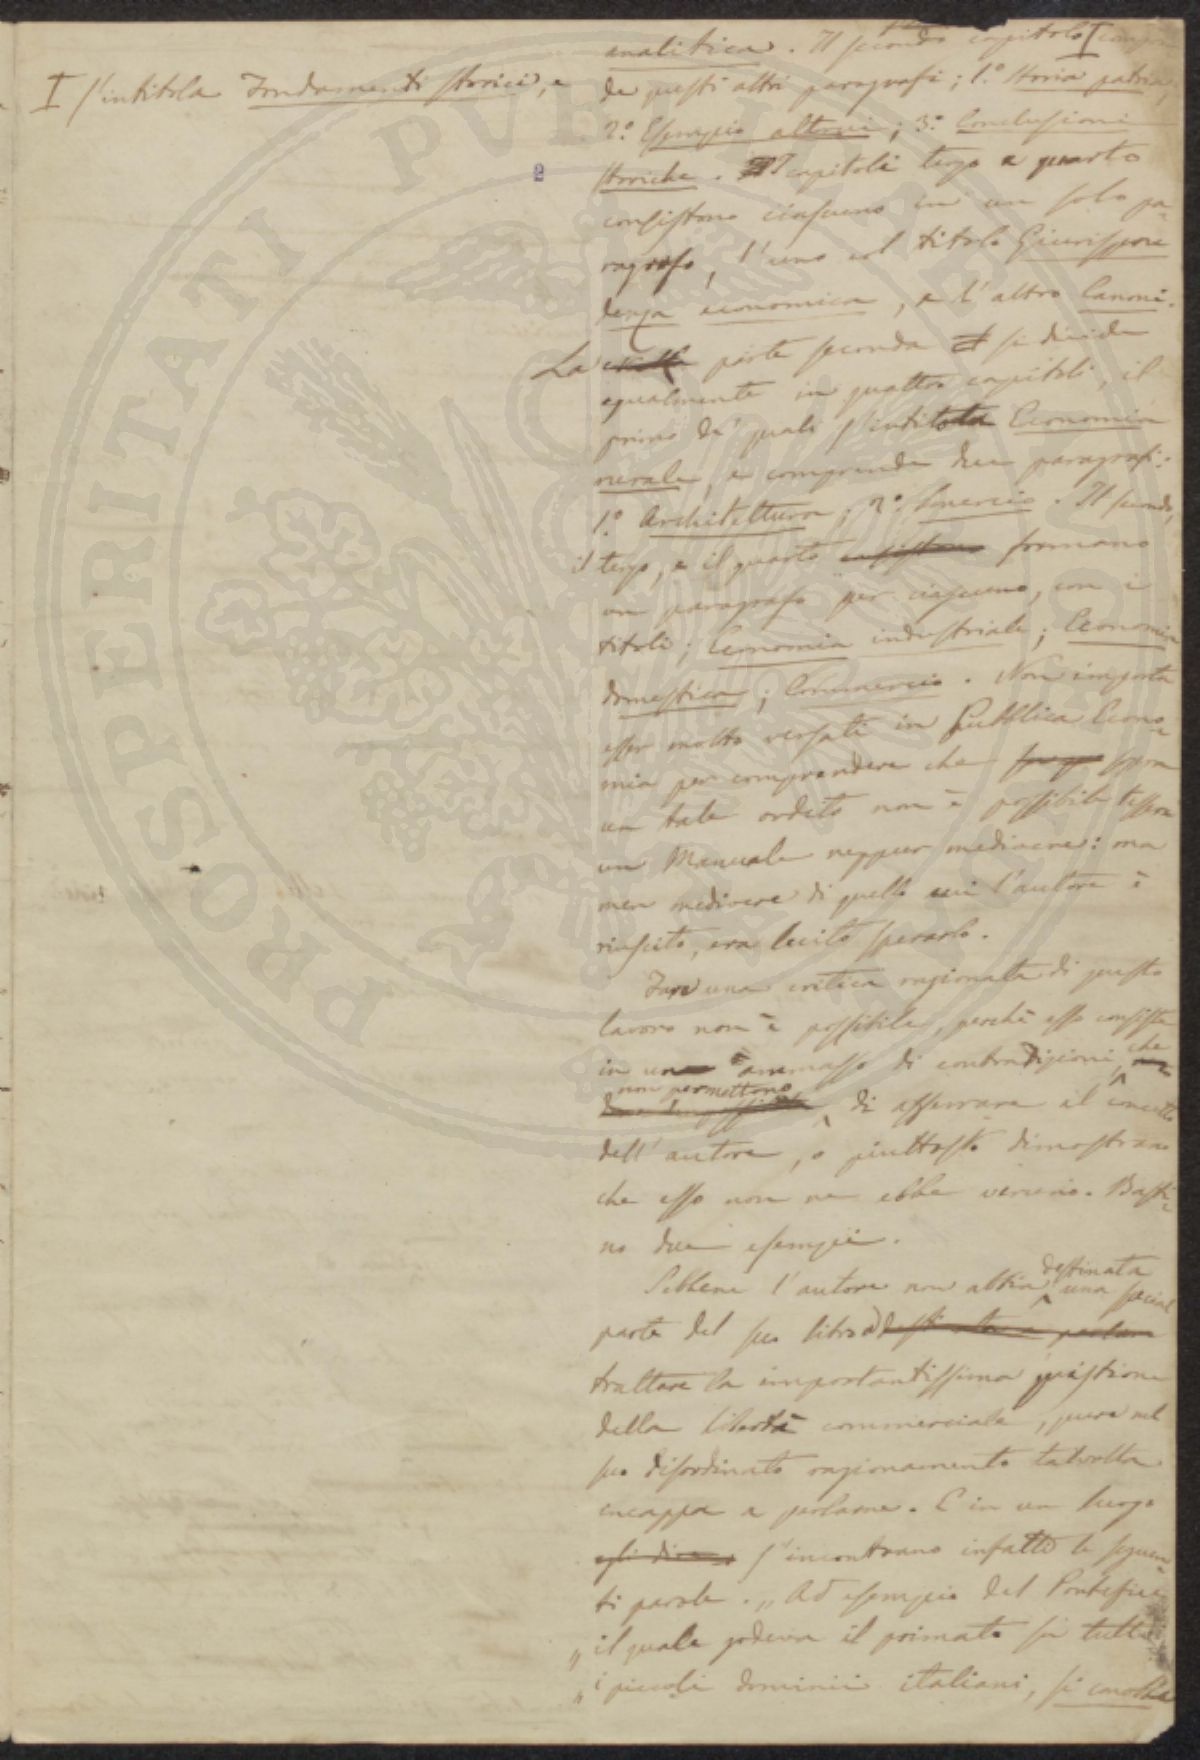 I s'intitola Fondamenti storici, e
2
analitica. Il secondo capitolo I compren
de questi altri paragrafi; 1.° Storia patria;
2.° Esempio altrui; 3.° Conclusioni
storiche. I capitoli terzo e quarto
consistono ciascuno in un solo pa-
ragrafo, l'uno col titolo Giurispru
denza economica, e l'altro Canoni.
La parte seconda si divide
egualmente in quattro capitoli, il
primo de' quali s'intitola Economia
rurale, e comprende due paragrafi:
1.° Architettura; 2.° . Il secondo,
il terzo, e il quarto formano
un paragrafo per ciascuno, con i
titoli; Economia industriale; Economia
domestica; Commercio. Non importa
esser molto versati in Pubblica Econo-
mia per comprendere che sopra
un tale ordito non è possibile tessere
un Manuale neppur mediocre: ma
men mediocre di quello cui l'autore è
riuscito, era lecito sperarlo.
Fare una critica ragionata di questo
lavoro non è possibile, perchè esso consiste
in un ammasso di contradizioni, che
non permettono di afferrare il concetto
dell'autore, o piuttosto dimostrano
che esso non ne ebbe veruno. Basti-
no due esempii.
Sebbene l'autore non abbia destinata una special
parte del suo libro a
trattare la importantissima quistione
della libertà commerciale, pure nel
suo disordinato ragionamento talvolta
incappa a parlarne. E in un luogo
s'incontrano infatti le seguen-
ti parole. „ Ad esempio del Pontefice
„ il quale godeva il primato su tutti
„ i piccoli dominii italiani, si